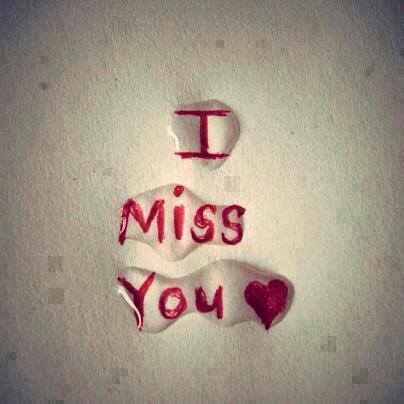 I
Miss
You ♥